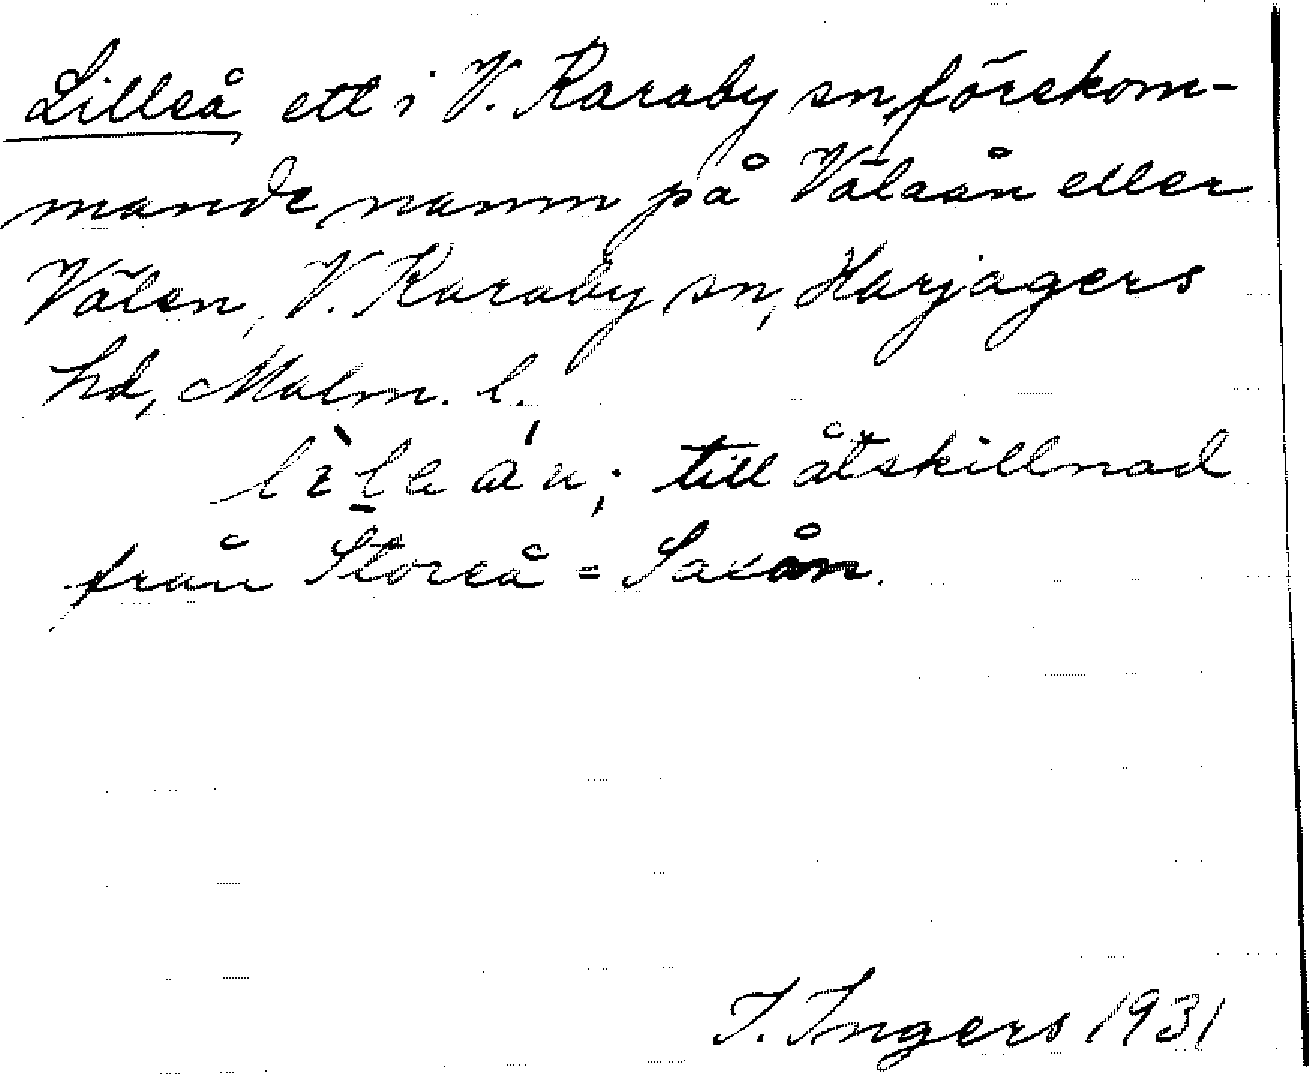 Lilleå ett i V. Karaby sn förekom-
mande namn på Välaån eller
Välen, V. Karaby sn, Harjagers
hd, Malm. l.
till åtskillnad
från Storeå = Saxån.
I. Ingers 1931